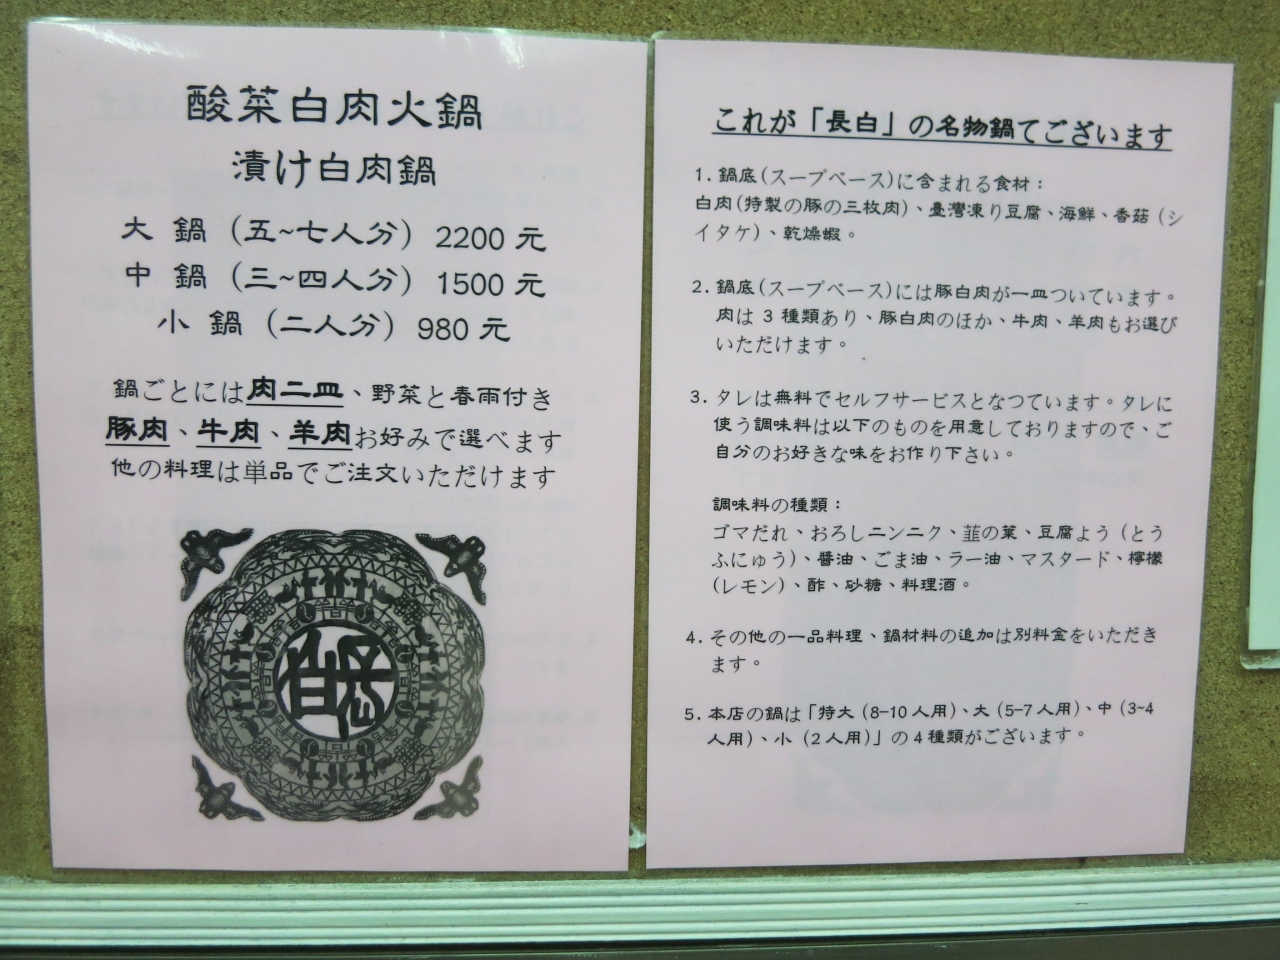 酸菜白肉火鍋
漬け白肉鍋
大 鍋 （五~七人分） 2200 元
中 鍋 （三~四人分） 1500 元
小 鍋 （二人分） 980 元
鍋ごとには肉二皿、野菜と春雨付き
豚肉、牛肉、羊肉お好みで選べます
他の料理は単品でご注文いただけます
これが「長白」の名物鍋てございます
1. 鍋底(スープベース)に含まれる食材：
白肉(特製の豚の三枚肉)、臺灣凍り豆腐、海鮮、香菇（シ
イタケ)、乾燥蝦。
2. 鍋底(スープベース)には豚白肉が一皿ついています。
肉は 3 種類あり、豚白肉のほか、牛肉、羊肉もお選び
いただけます。
3. タレは無料でセルフサービスとなつています。タレに
使う調味料は以下のものを用意しておりますので、ご
自分のお好きな味をお作り下さい。
調味料の種類：
ゴマだれ、おろしニンニク、韮の葉、豆腐よう（とう
ふにゅう)、醬油、ごま油、ラー油、マスタード、檸檬
(レモン)、酢、砂糖、料理酒。
4. その他の一品料理、鍋材料の追加は別料金をいただき
ます。
5. 本店の鍋は「特大（8-10 人用)、大（5-7 人用)、中（3~4
人用)、小（2 人用)」の 4 種類がございます。